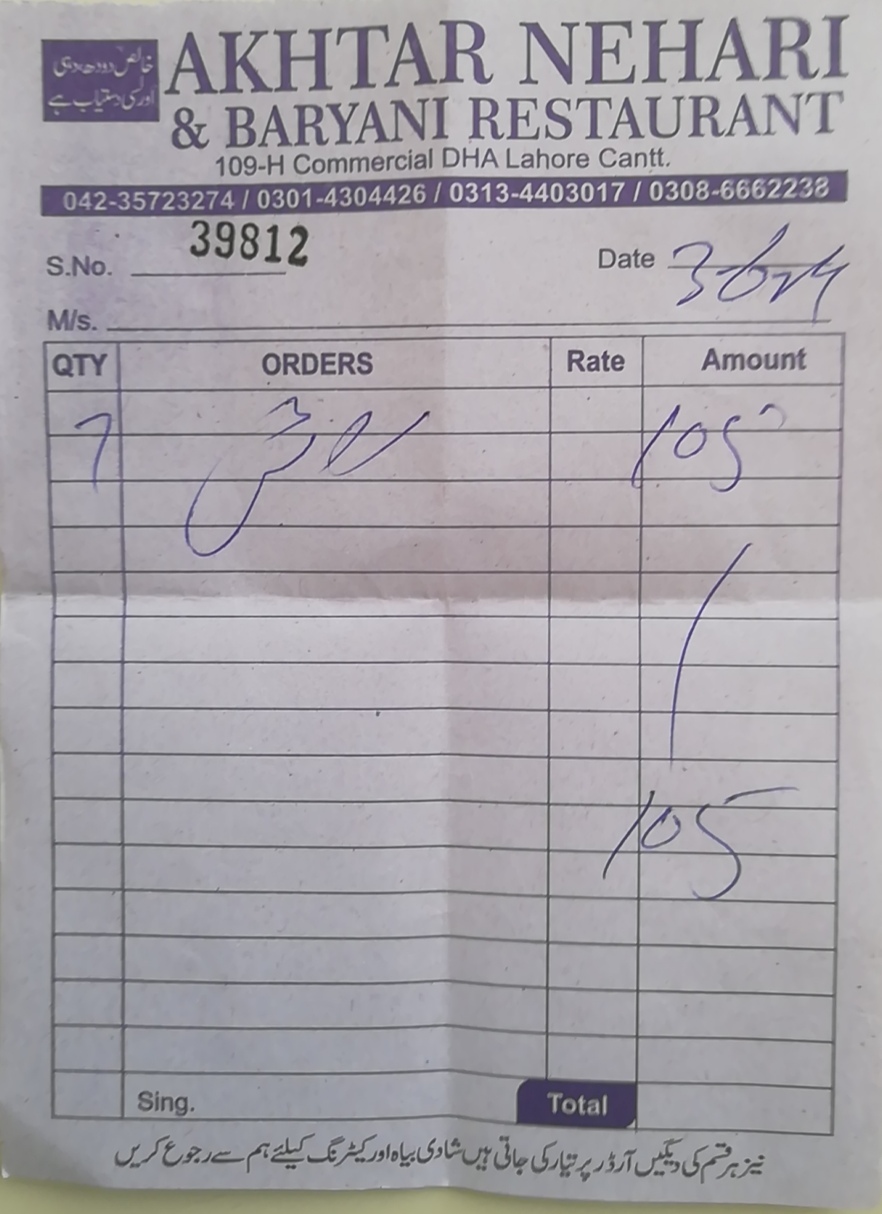 خالص دودھ دہی
اور لسی دستیاب ہے
AKHTAR NEHARI
& BARYANI RESTAURANT
109-H Commercial DHA Lahore Cantt.
042-35723274 / 0301-4304426 / 0313-4403017 / 0308-6662238
S.No. 39812 Date
M/s.
QTY ORDERS Rate Amount
7 105
105
Sing. Total
نیز ہر قسم کی دیگیں آرڈر پر تیار کی جاتی ہیں شادی بیاہ اور کیٹرنگ کیلئے ہم سے رجوع کریں